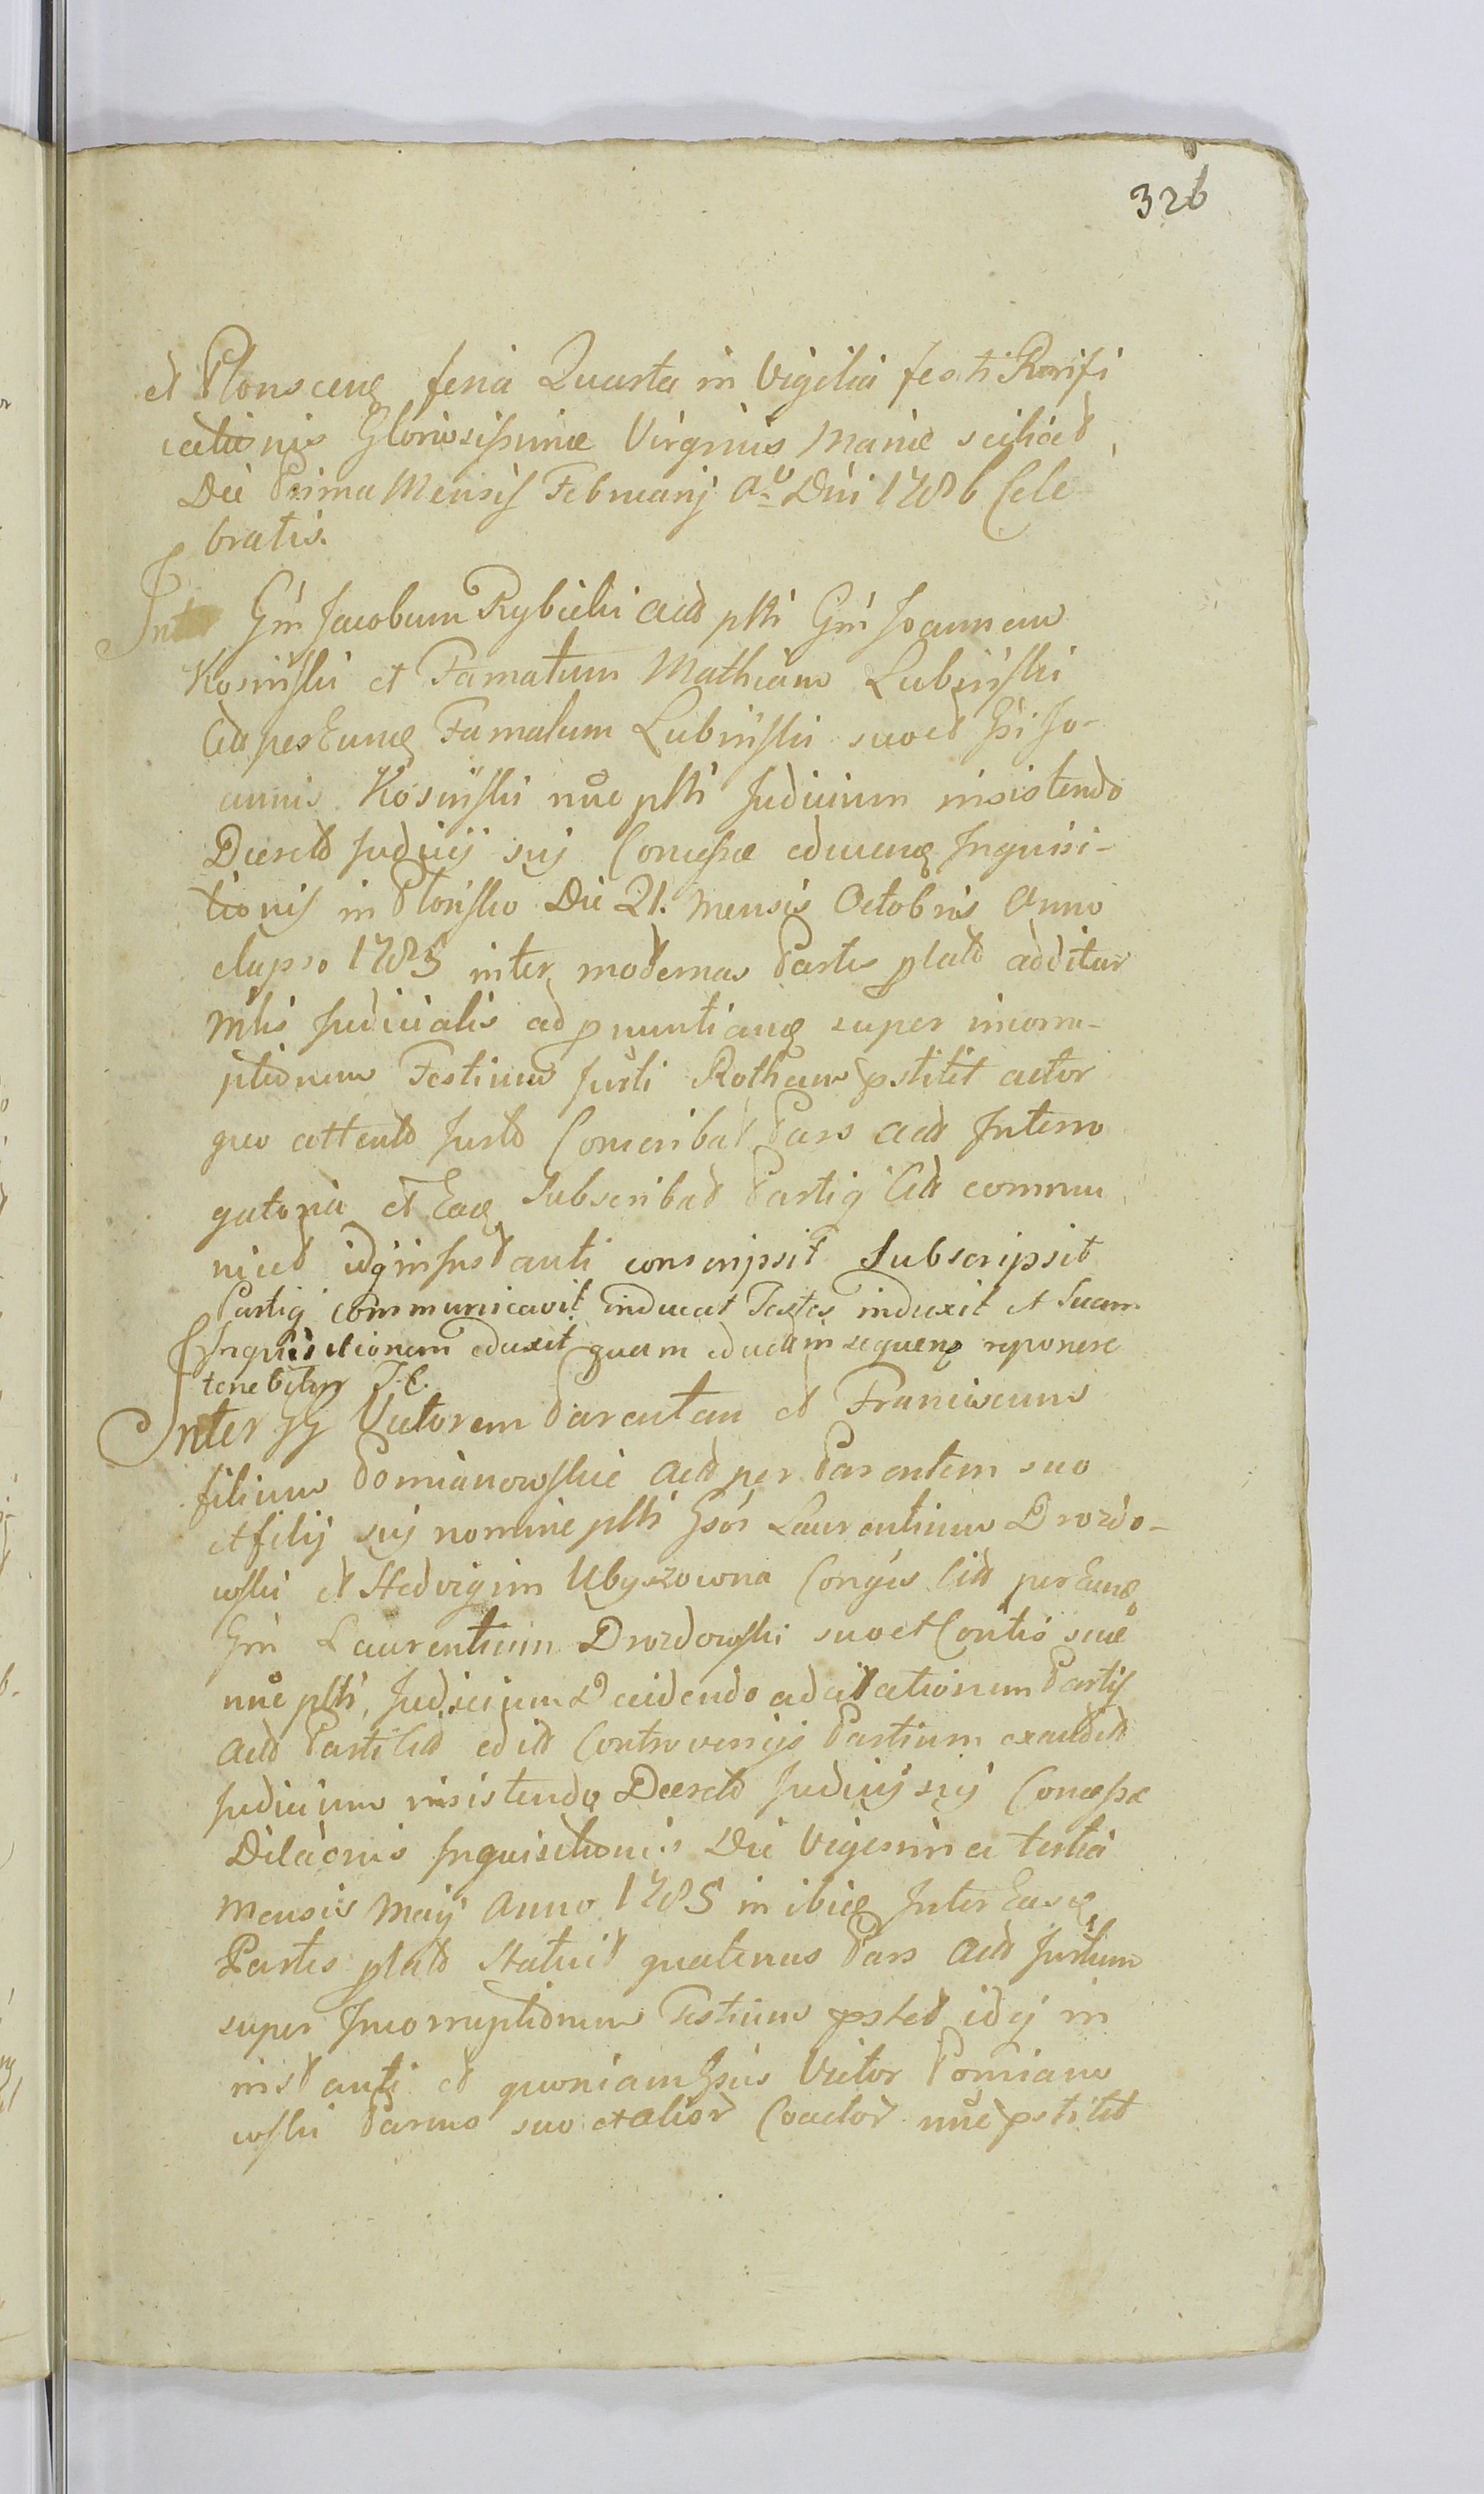 326
et Plonscenę feria Quarta in Vigilia festi Purifi
cationis Gloriosissimæ Virginis Mariæ scilicet
Die Prima Mensis Februarij Aº Dni 1786 Cele
bratis.
Inter Gm Jacobum Rybicki Actt psti Gm Joannem
Kosinski et Famatum Mathiam Lubinski
Citt per Eunđ Famatum Lubinski suo et Gsi Jo-
annis Kosinski nŭe psti Judicium insistendo
Decreto Judicij sŭi Concessæ educenđ Inquisi-
tionis in Plonsko Die 21. Mensis Octobris Anno
elapso 1785 inter modernas Partes plato additur
Mlis Judicialis ad pnuntianđ super incorru-
ptionem Testium Jurti Rotham pstitit actor
quo attento Jurto Conscribat Pars actt Interro
gatoria et Eađ Subscribat Partiq Citt commu
nicet idq instanti conscripsit Subscripsit
Partiq communicavit inducat Testes induxit et Suam
Inquisitionem eduxit quam eductam sequenđ reponere
tenebitur J. C.
Inter GG Victorem Parentem et Franciscum
filium Pomianowskie Actt per Parentem suo
et filij sŭi nomine psti Gsos Laurentium Drozdo-
wski et Hedvigim Ubyszowna Conges Citt per Eunđ
Gm Laurentium Drozdowski suo et Contis suæ
nŭe psti, Judicium Decidendo ad citationem Partis
Actt Parti Citt editt Controversijs Partium exauditt
Judicium insistendo Decreto Judicij sŭi Concessæ
Dilaonis Inquisitionis Die Vigesima tertia
Mensis Maij Anno 1785 in ibiđ Inter Easđ
Partes plato Statuit quatenus Pars Actt Jurtum
super Incorruptionem Testium pstet idq in
instanti et quoniam Gsus Victor Pomiano
wski Parens suo et alior Coactor nŭe pstitit